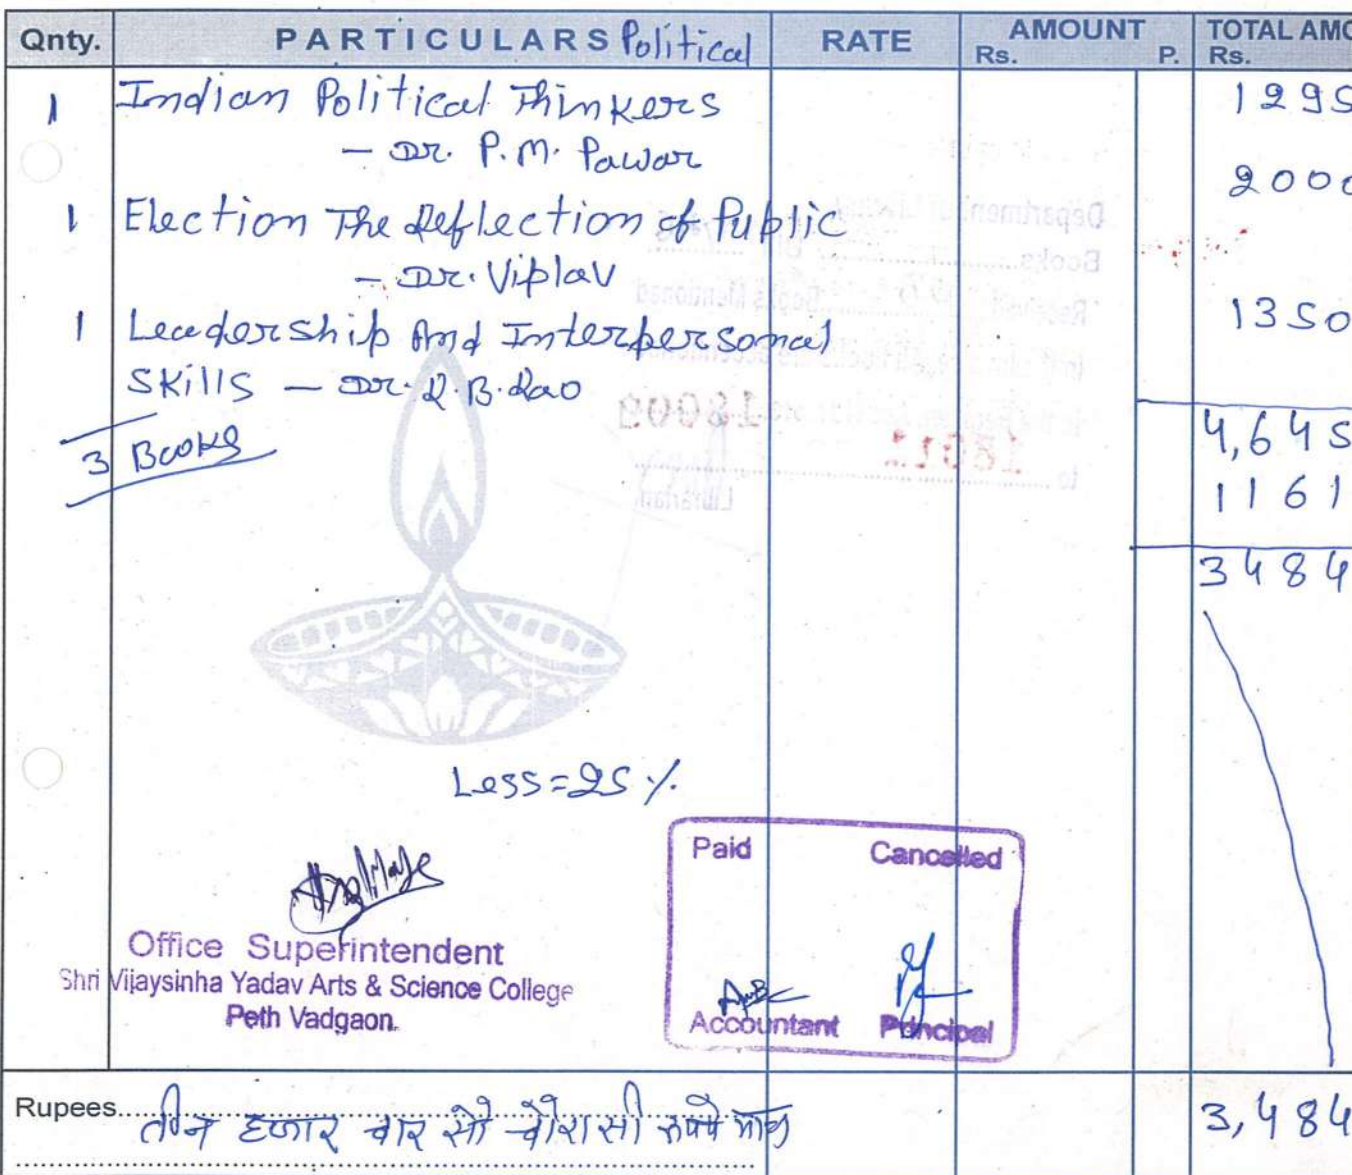 Qnty. PARTICULARS Political RATE AMOUNT TOTAL AMO
Rs. P. Rs.
1 Indian Political Thinkers 1295
- Dr. P.M. Pawar
2000
1 Election The Reflection of Public
- Dr. Viplav
1 Leadership And Interpersonal 1350
Skills - Dr. R.B. Rao
4,645
3 Books
1161
3484
Less = 25 %.
Paid Cancelled
Office Superintendent
Shri Vijaysinha Yadav Arts & Science College
Peth Vadgaon.
Accountant Principal
Rupees तीन हजार चार सो चोरासी रुपये मात्र 3,484